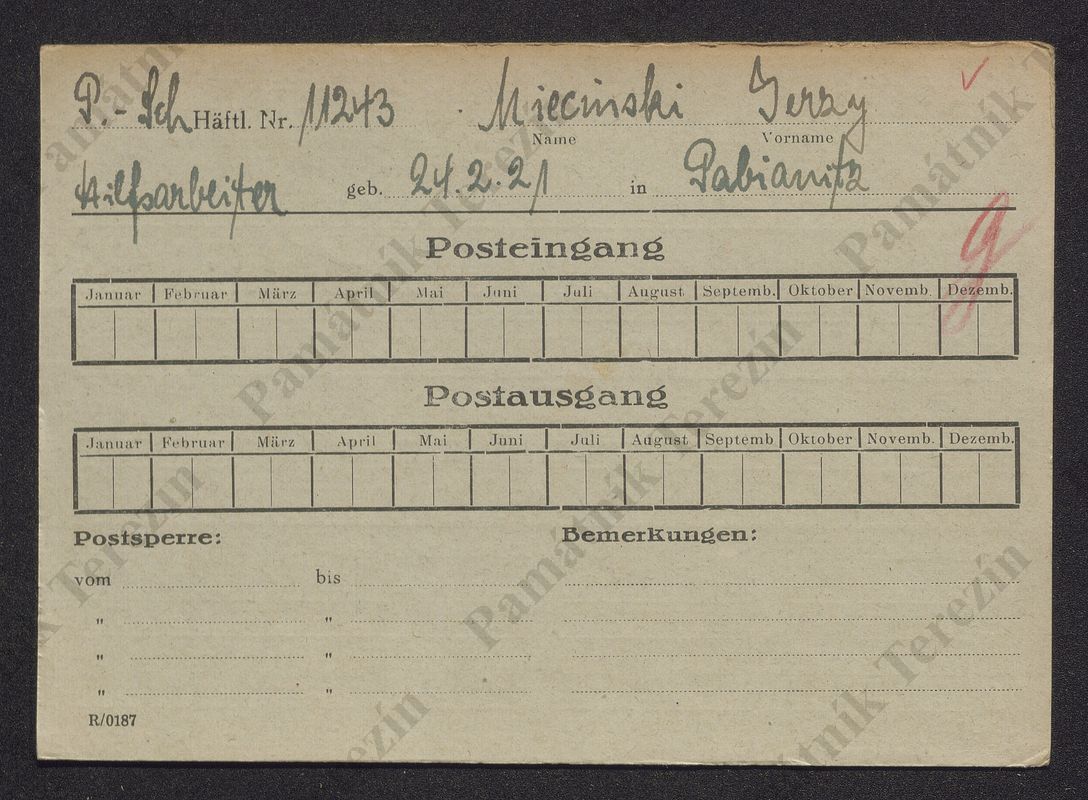 P.-Sch Häftl. Nr. 11243 Miecinski Jerzy
Name Vorname
Hilfsarbeiter geb. 24.2.21 in Pabianitz
Posteingang
Januar Februar März April Mai Juni Juli August Septemb. Oktober Novemb. Dezemb.
Postausgang
Januar Februar März April Mai Juni Juli August Septemb Oktober Novemb. Dezemb.
Postsperre: Bemerkungen:
vom bis
" "
" "
" "
R/0187
Památník Terezín